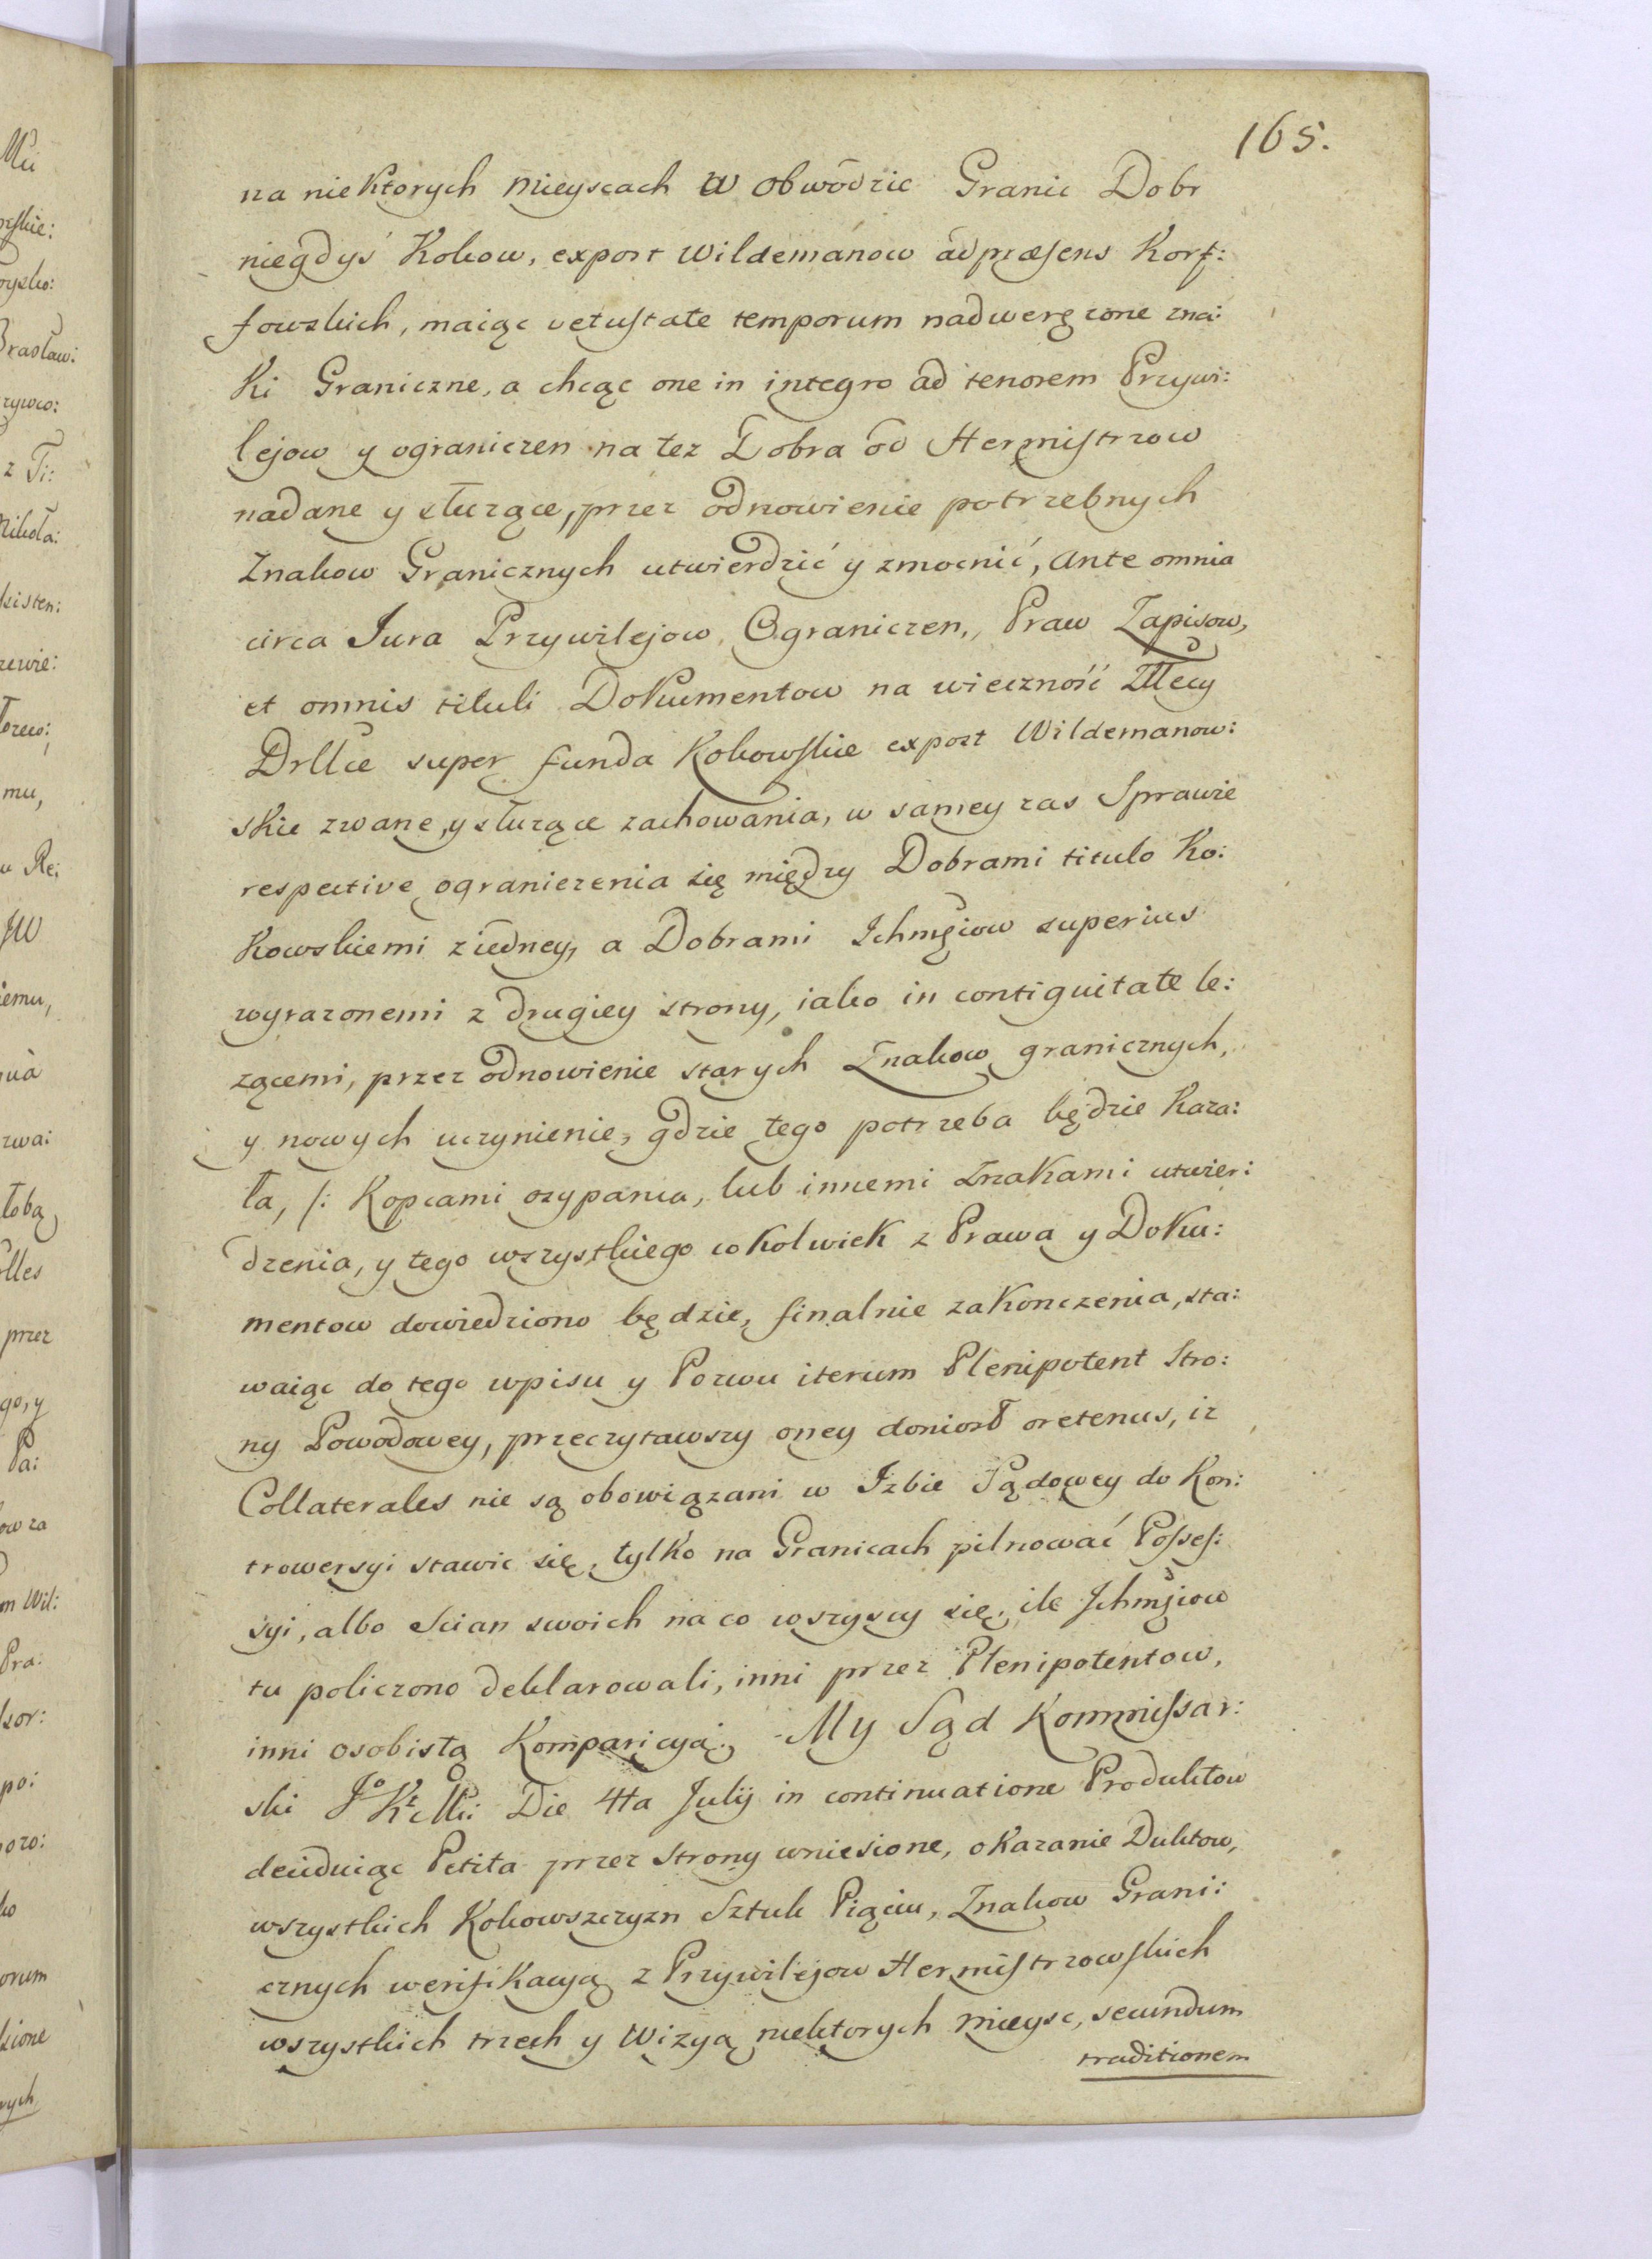 165.
na niektorych mieyscach w obwodzie Granic Dobr
niegdyś Kokow, expost Wildemanow ad præsens Korf:
fowskich, maiąc vetustate temporum nadweręzone zna:
ki Graniczne, a chcąc one in integro ad tenorem Przywi:
lejow y ograniczen na tez Dobra od Hermistrzow
nadane y słuzące, przez odnowienie potrzebnych
Znakow Granicznych utwierdzić y zmocnić, ante omnia
circa Jura Przywilejow, Ograniczen, Praw Zapisow,
et omnis tituli Dokumentow na wieczność
super funda Kokowskie expost Wildemanow:
skie zwane, y słuzące zachowania, w samey zas Sprawie
respective ograniczenia się między Dobrami titulo Ko:
kowskiemi z iedney, a Dobrami Ichmściow superius
wyrazonemi z drugiey strony, iako in contiguitate le:
zącemi, przez odnowienie starych Znakow granicznych,
y nowych uczynienie, gdzie tego potrzeba będzie kaza:
ła, /: Kopcami ozypania, lub innemi Znakami utwier:
dzenia, y tego wszystkiego cokolwiek z Prawa y Doku:
mentow dowiedziono będzie, finalnie zakonczenia, sta:
waiąc do tego wpisu y Pozwu iterum Plenipotent Stro:
ny Powodowey, przeczytawszy oney doniosł oretenus, iz
Collaterales nie są obowiązani w Izbie Sądowey do Kon:
trowersyi stawic się, tylko na Granicach pilnować Posses:
syi, albo Scian swoich na co wszyscy się, ile Ichmściow
tu policzono deklarowali, inni przez Plenipotentow,
inni osobistą Komparicyą. My Sąd Kommissar:
ski Die 4ta Julij in continuatione Produktow
decidując Petita przez Strony wniesione, okazanie Duktow,
wszystkich Kokowszczyzn Sztuk Piąciu, Znakow Grani:
cznych werifikacyą z Przywilejow Hermistrzowskich
wszystkich trzech y Wizyą niektorych mieysc, secundum
traditionem